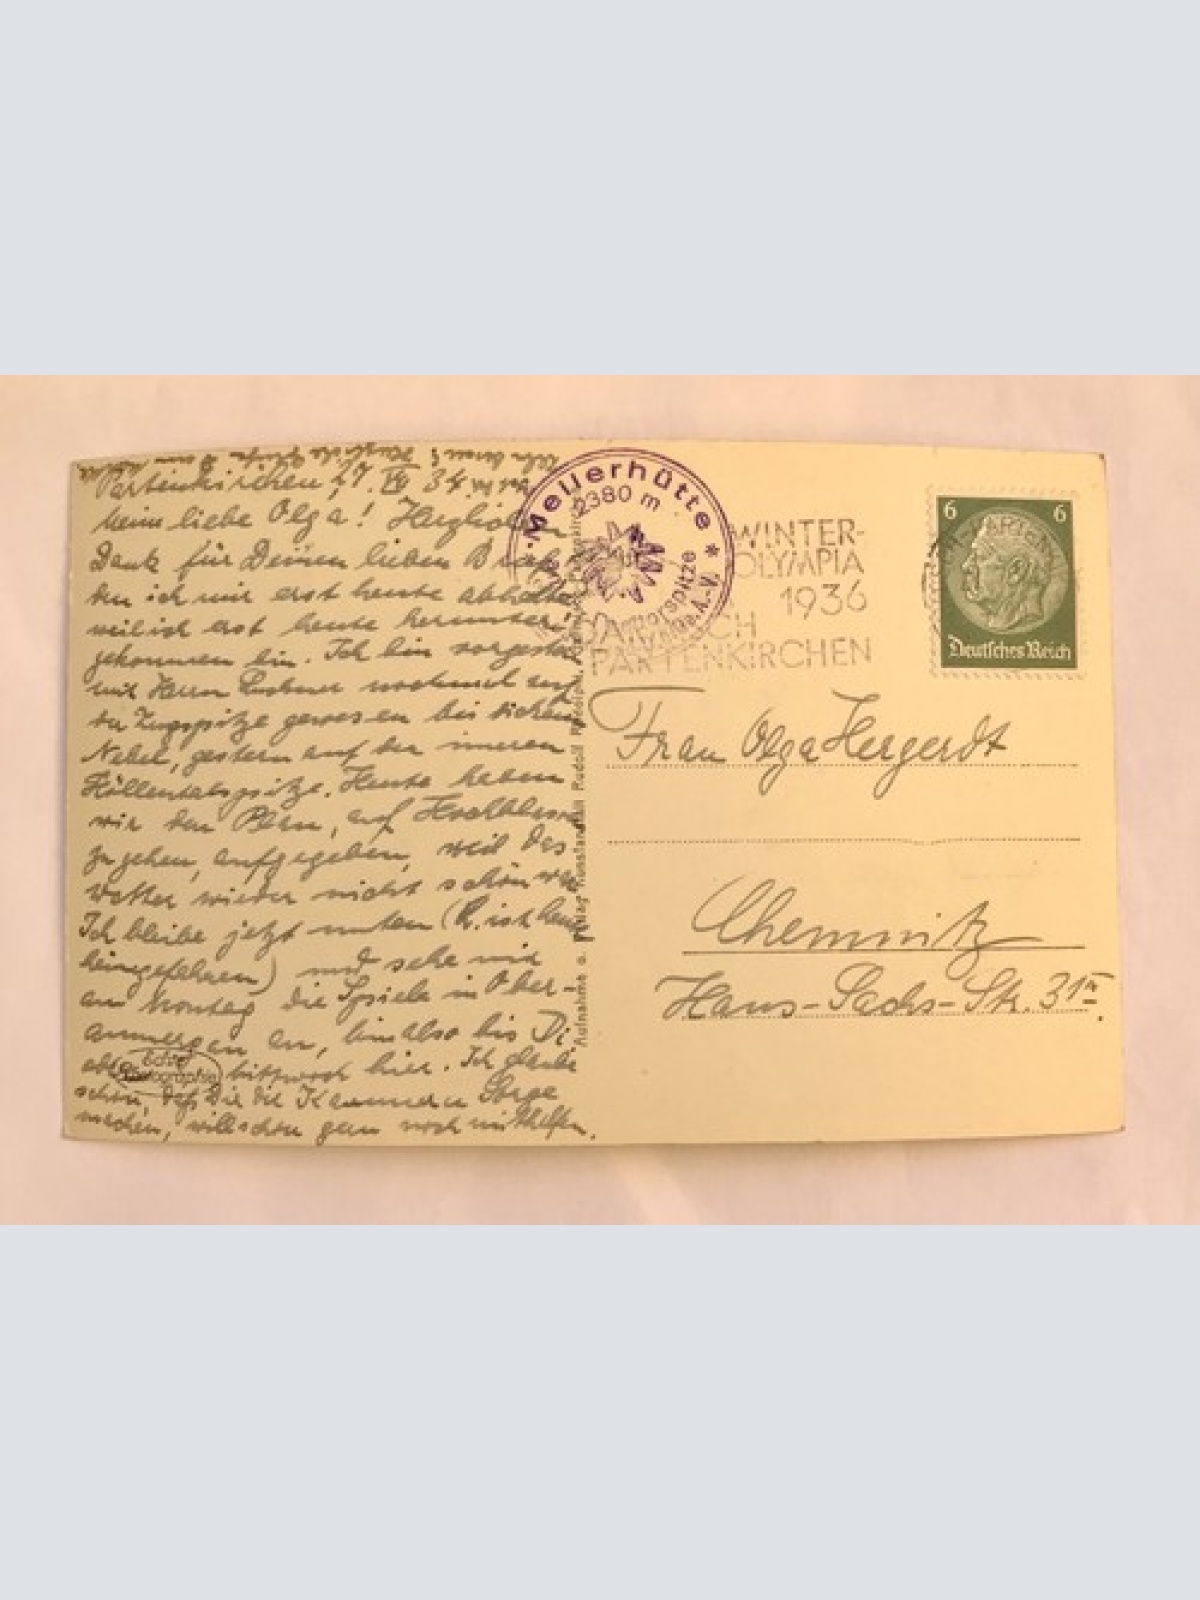 Partenkirchen 27. VII 34.
Meine liebe Olga! Herzlichen
Dank für Deinen lieben Brief,
den ich mir erst heute abholte,
weil ich erst heute herunter
gekommen bin. Ich bin vorgestern
mit Herrn nochmal auf
der Zugspitze gewesen bei dickem
Nebel, gestern auf der inneren
Höllentalspitze. Heute haben
wir den Plan, auf
zu gehen, aufgegeben, weil das
Wetter wieder nicht schön war
Ich bleibe jetzt unten (L. ist heute
heimgefahren) und sehe mir
am Montag die Spiele in Ober-
ammergau an, bin also bis Di
oder Mittwoch hier. Ich glaube
schon, daß Dir die Kammern Sorge
machen, will schon gern noch mithelfen.
Echte
Photographie
Aufnahme u. Verlag Kunstanstalt Rudolf
Meilerhütte
2380 m
WINTER-
OLYMPIA
1936
PARTENKIRCHEN
6 6
Deutsches Reich
Frau Olga Hergerdt
Chemnitz
Hans-Sachs-Str. 31